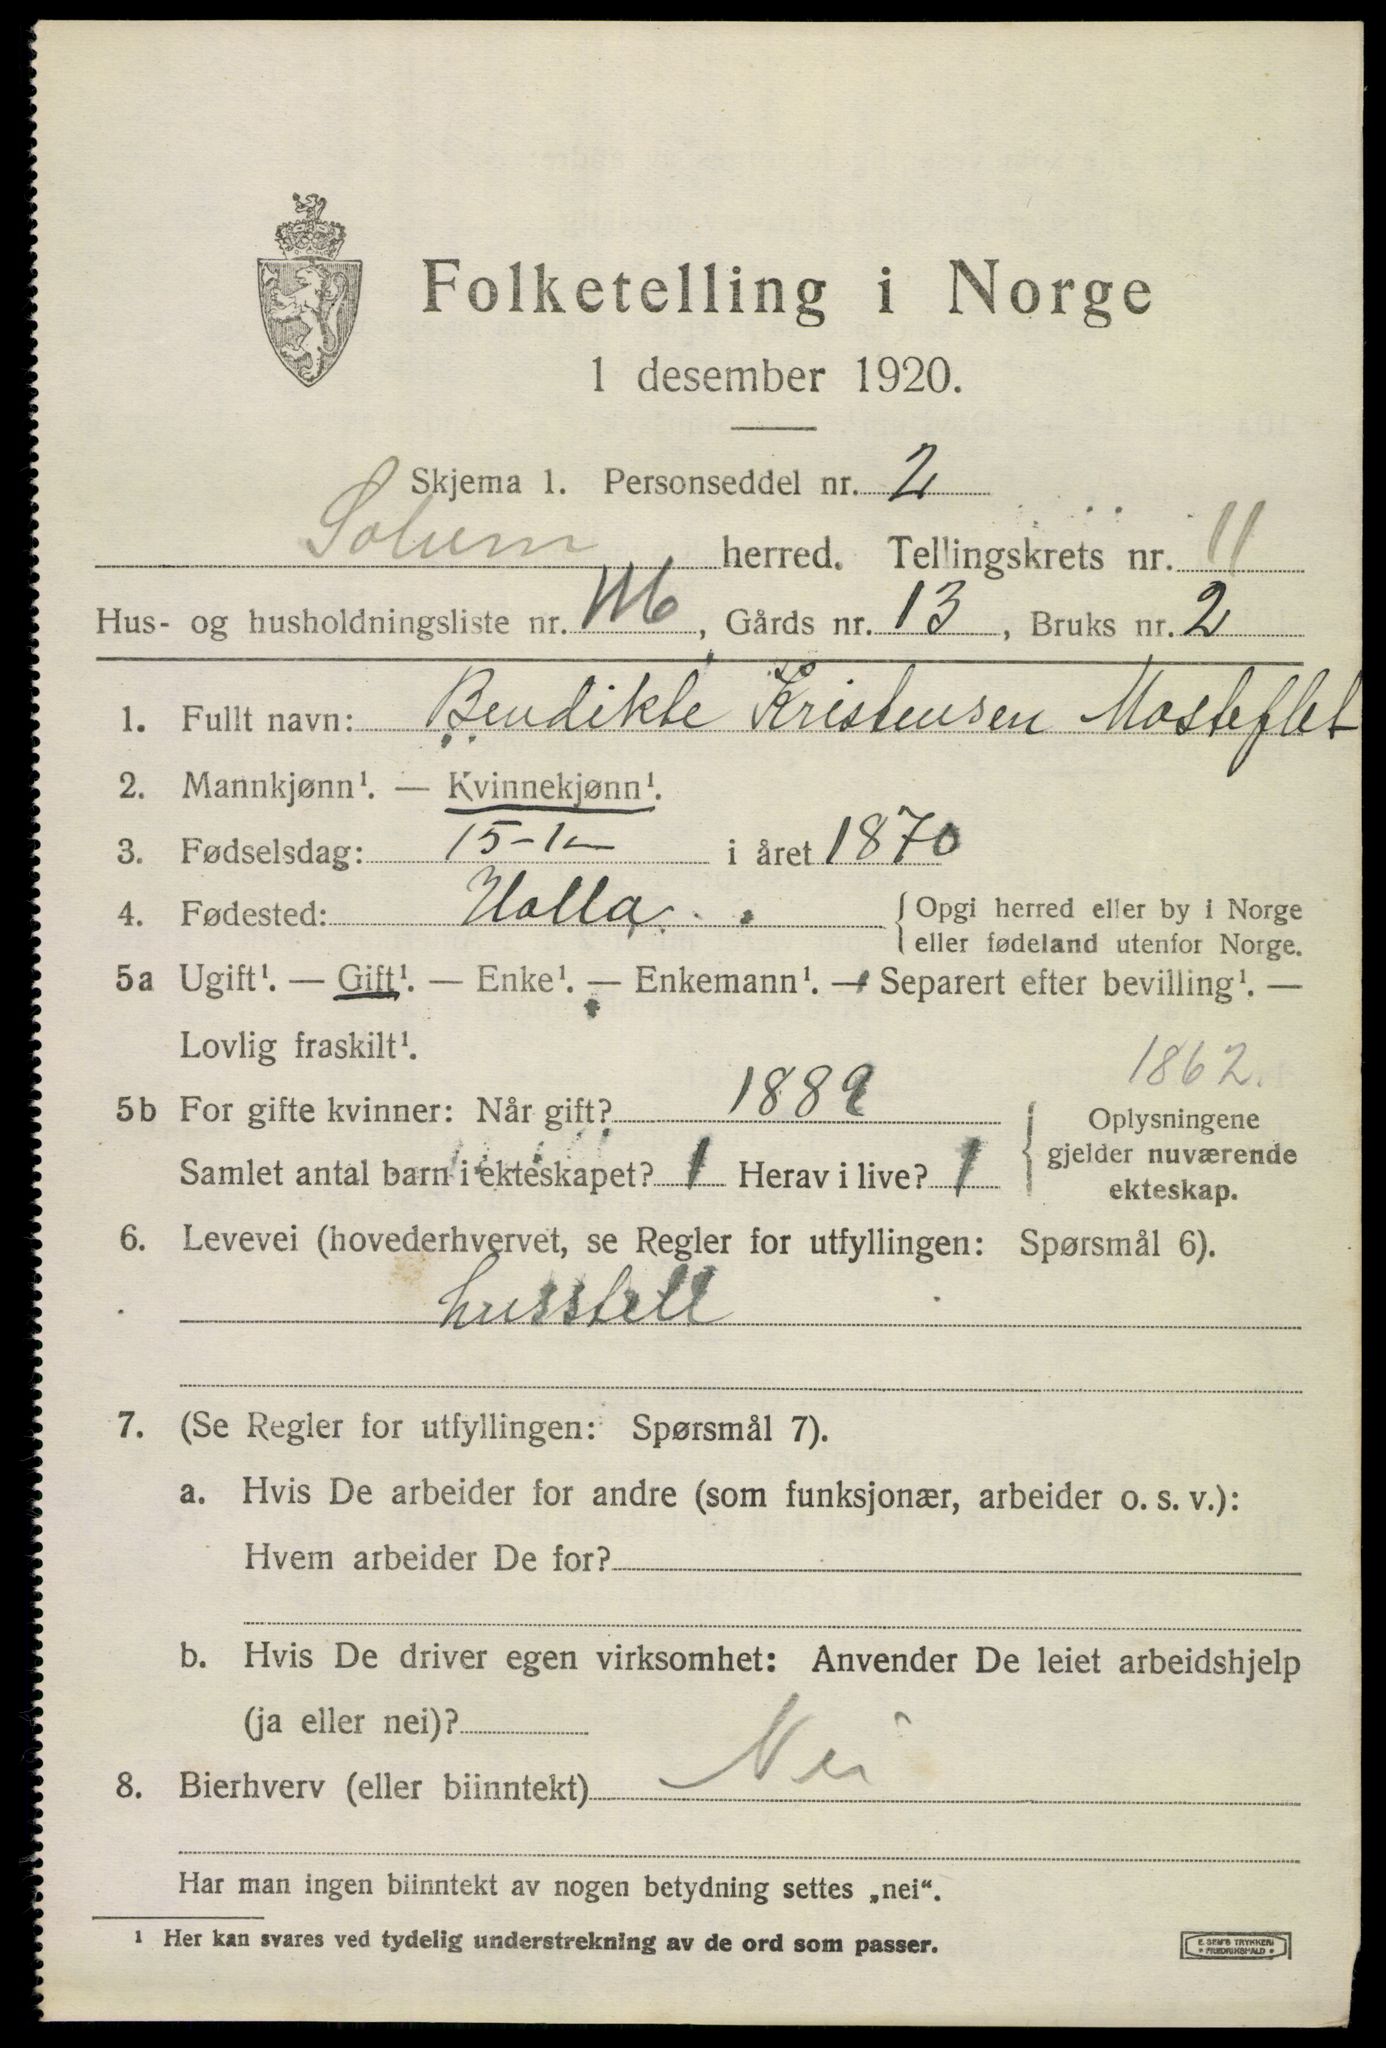 Folketelling i Norge
1 desember 1920.
Skjema 1. Personseddel nr. 2
Solum herred. Tellingskrets nr. 11
Hus- og husholdningsliste nr. , Gårds nr. 13, Bruks nr. 2
1. Fullt navn: Bendikte Kristensen Mosteflet
2. Mannkjønn¹. — Kvinnekjønn¹.
3. Fødselsdag: i året 1870
4. Fødested: Holla. {Opgi herred eller by i Norge
eller fødeland utenfor Norge.
5a Ugift¹. — Gift¹. — Enke¹. — Enkemann¹. — Separert efter bevilling¹. —
Lovlig fraskilt¹.
1862.
5b For gifte kvinner: Når gift? 1889
Samlet antal barn i ekteskapet? 1 Herav i live? 1
{Oplysningene
gjelder nuværende
ekteskap.
6. Levevei (hovederhvervet, se Regler for utfyllingen: Spørsmål 6).
husstell
7. (Se Regler for utfyllingen: Spørsmål 7).
a. Hvis De arbeider for andre (som funksjonær, arbeider o. s. v.):
Hvem arbeider De for?
b. Hvis De driver egen virksomhet: Anvender De leiet arbeidshjelp
(ja eller nei)?
8. Bierhverv (eller biinntekt) Nei
Har man ingen biinntekt av nogen betydning settes „nei“.
¹ Her kan svares ved tydelig understrekning av de ord som passer.
E. SEM'S TRYKKERI
FREDRIKSHALD